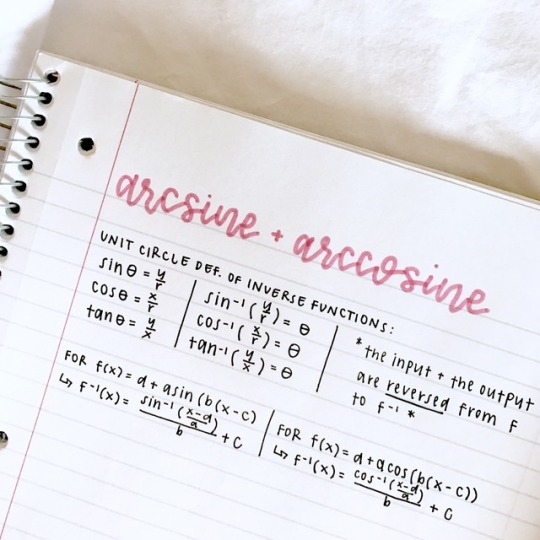 arcsine + arccosine
UNIT CIRCLE DEF. OF INVERSE FUNCTIONS:
sin θ = y/r
cos θ = x/r
tan θ = y/x
sin⁻¹(y/r) = θ
cos⁻¹(x/r) = θ
tan⁻¹(y/x) = θ
*the input + the output
are reversed from f
to f⁻¹ *
FOR f(x) = d + a sin(b(x-c)
↳ f⁻¹(x) = sin⁻¹((x-d)/a)/b + c
FOR f(x) = d + a cos(b(x-c))
↳ f⁻¹(x) = cos⁻¹((x-d)/a)/b + c